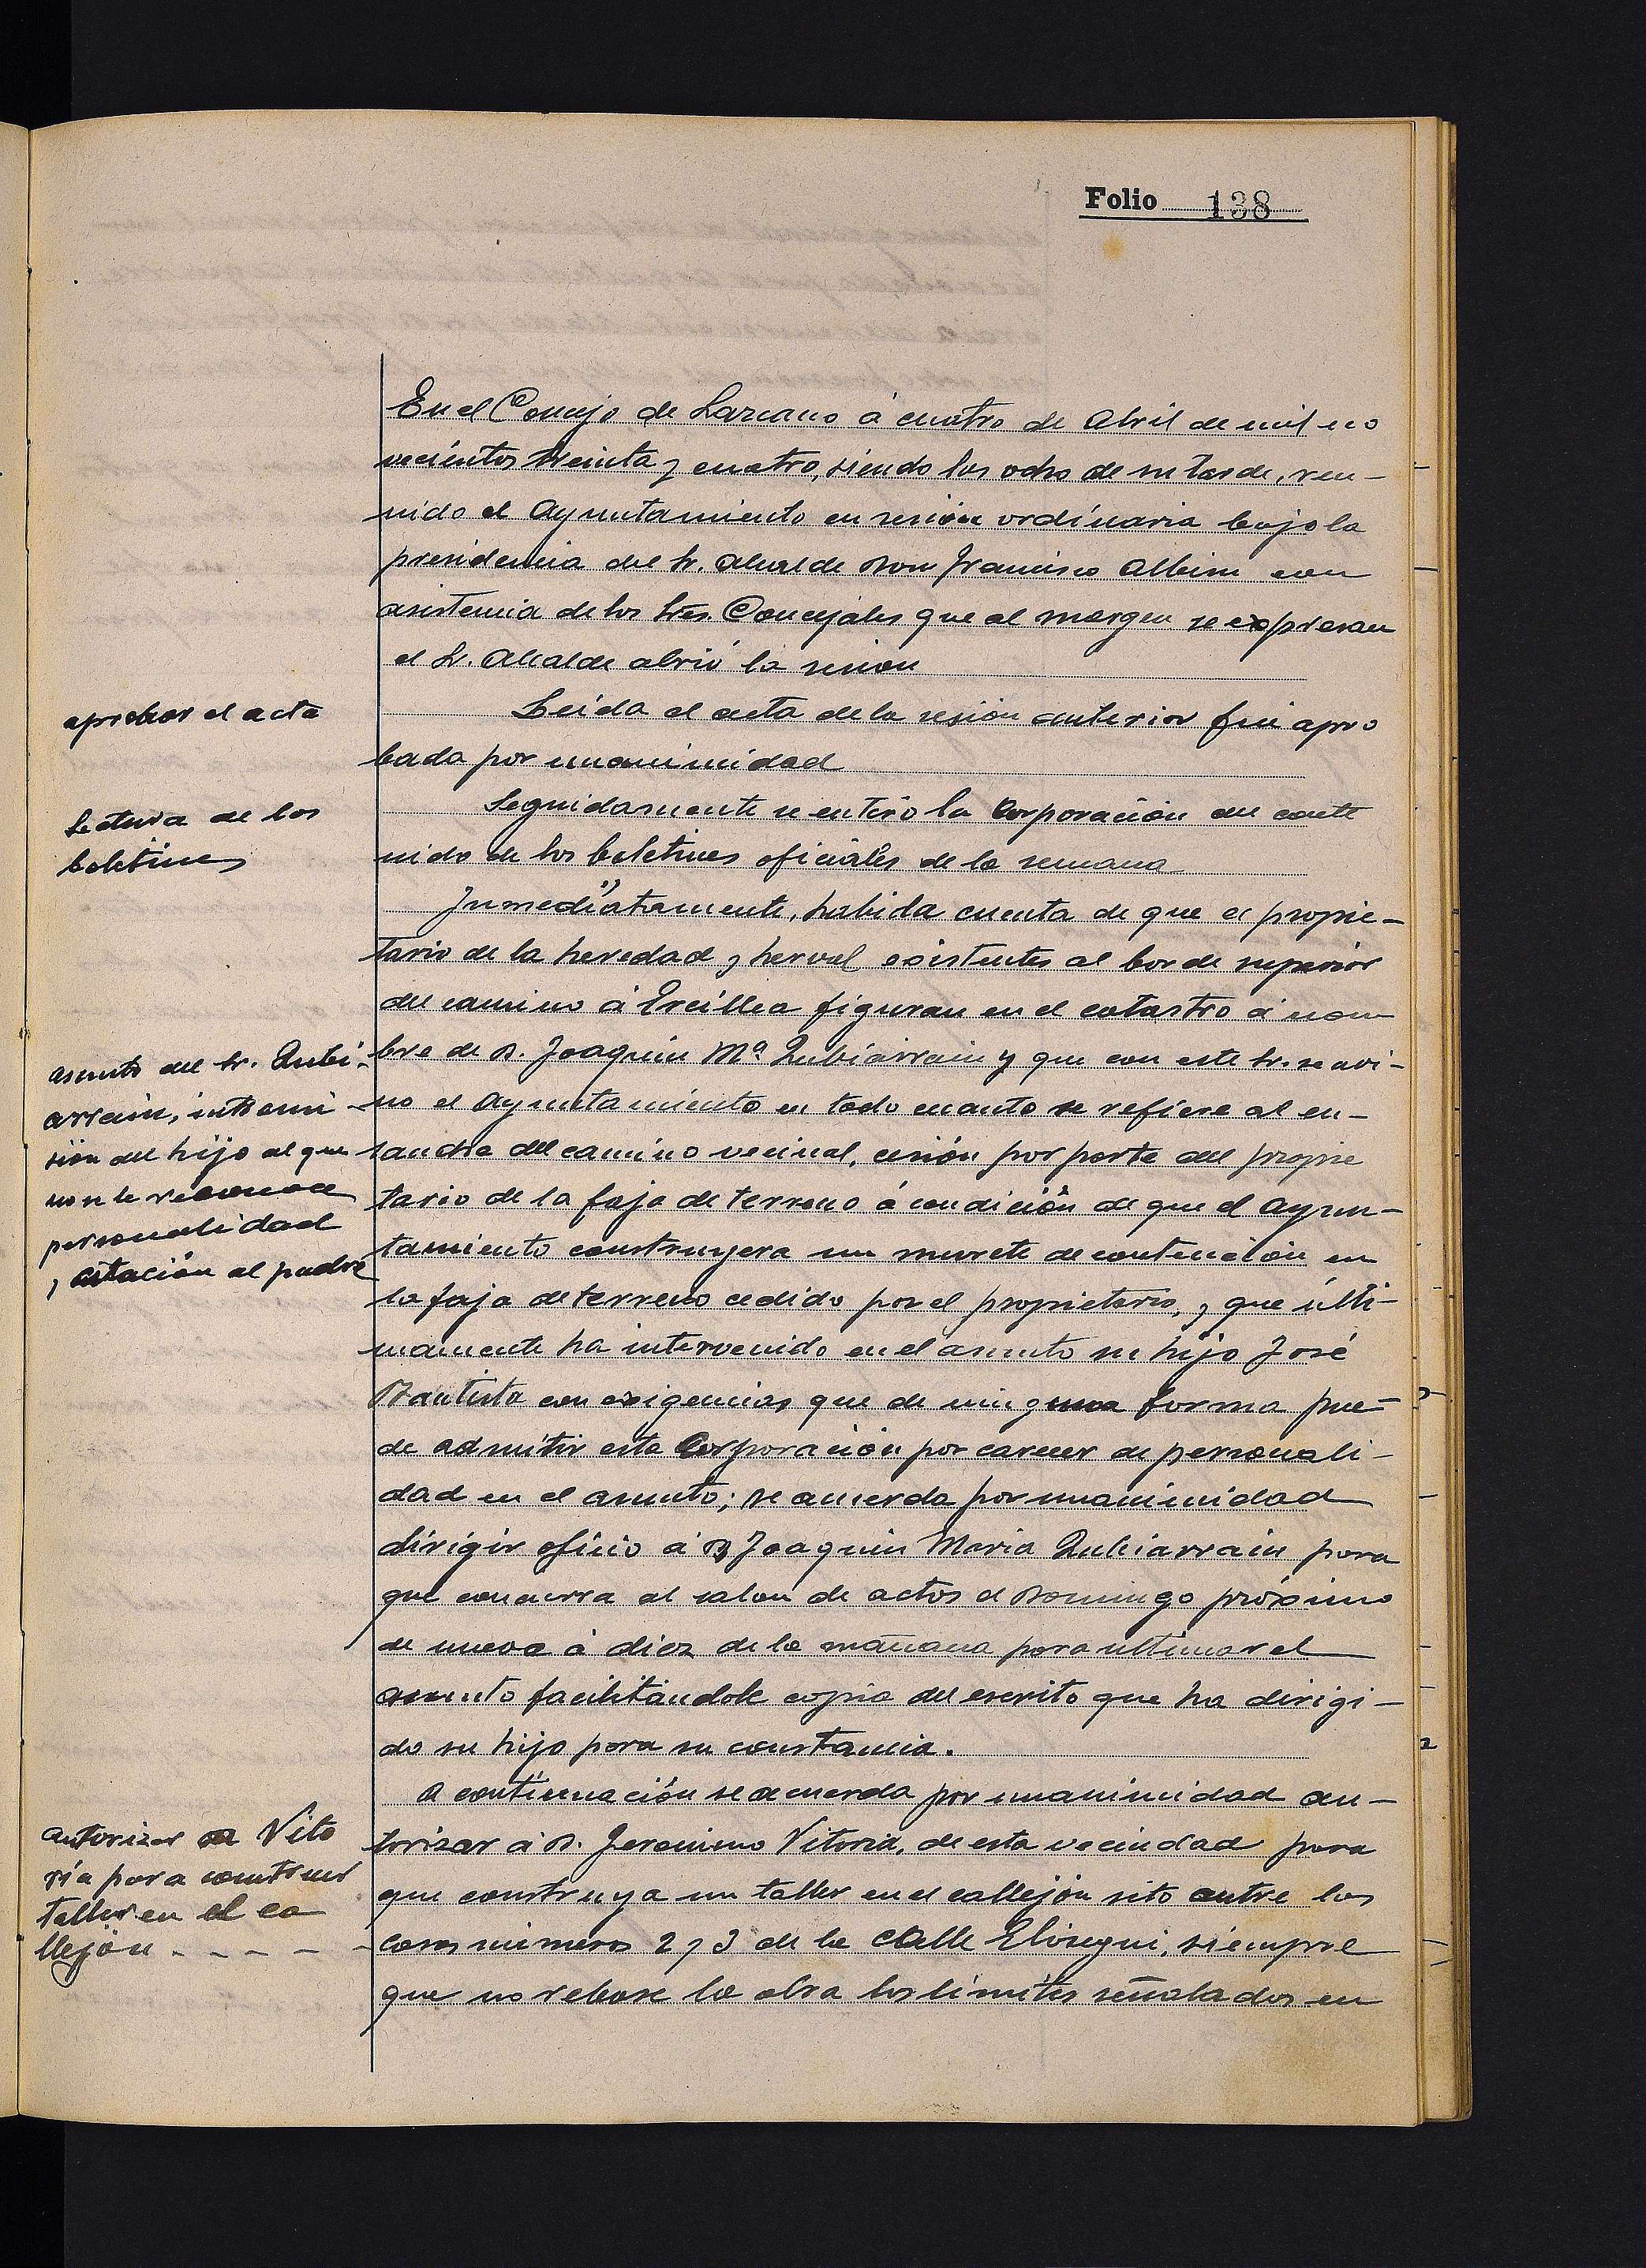 Folio 138
En el Concejo de Lazcano á cuatro de Abril de mil no
vecientos treinta y cuatro, siendo las ocho de su tarde, reu-
nido el Ayuntamiento en sesión ordinaria bajo la
presidencia del Sr. Alcalde Don Francisco Albisu con
asistencia de los Sres. Concejales que al margen se expresan
el Sr. Alcalde abrió la sesion
aprobar el acta
Leida el acta de la sesión anterior fué apro
bada por unanimidad
Lectura de los
boletines
Seguidamente se enteró la Corporación del conte
nido de los boletines oficiales de la semana
Inmediatamente, habida cuenta de que el propie-
tario de la heredad y herval existentes al borde superior
del camino á Ercillea figuran en el catastro á nom
bre de D. Joaquin Mª Zubiarrain y que con este Sr. se avi-
no el Ayuntamiento en todo cuanto se refiere al en-
sanche del camino vecinal, cesión por parte del propie
tario de la faja de terreno á condición de que el Ayun-
tamiento construyera un murete de contención en
la faja de terreno cedido por el propietario, y que últi-
mamente ha intervenido en el asunto su hijo José
Bautista con exigencias que de ninguna forma pue-
de admitir esta Corporación por carecer de personali-
dad en el asunto; se acuerda por unanimidad
dirigir oficio á D Joaquin Maria Zubiarrain para
que concurra al salon de actos el Domingo próximo
de nueve á diez de la mañana para ultimar el
asunto facilitándole copia del escrito que ha dirigi-
do su hijo para su constancia.
asunto del Sr. Zubi-
arrain, intromi-
sión del hijo al que
no se le reconoce
personalidad
y citación al padre
A continuación se acuerda por unanimidad au-
torizar á D. Jeronimo Vitoria, de esta vecindad para
que construya un taller en el callejón sito entre las
casas números 2 y 3 de la Calle Elosegui, siempre
que no rebase la obra los limites señalados en
autorizar a Vito
ria para construir
taller en el ca
llejón - - - - -